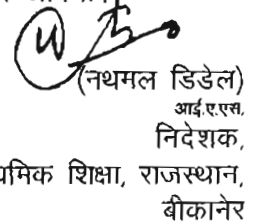 (नथमल डिडेल)
आई.ए.एस.
निदेशक,
यमिक शिक्षा, राजस्थान,
बीकानेर